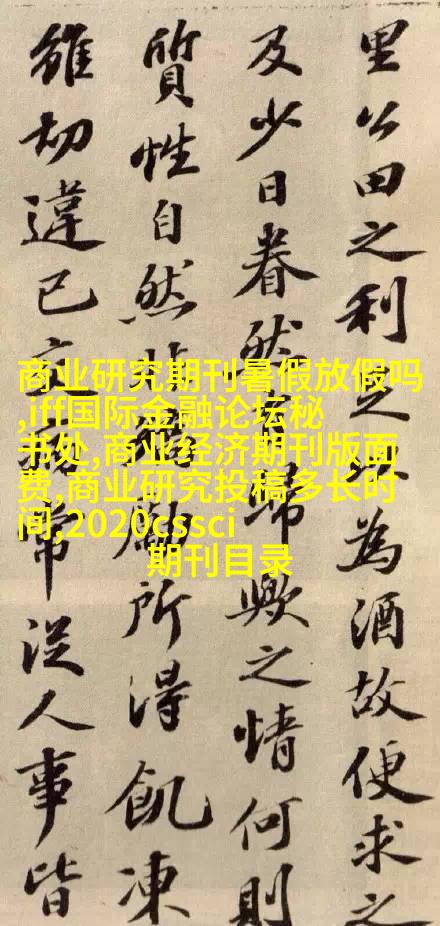 里公田之利足以為酒故便求之
及少日眷然歸歟之情何則
質性自然勵所得飢凍
雖切違已常從人事皆
商业研究期刊暑假放假吗
,iff国际金融论坛秘
书处,商业经济期刊版面
费,商业研究投稿多长时
间,2020cssci
期刊目录